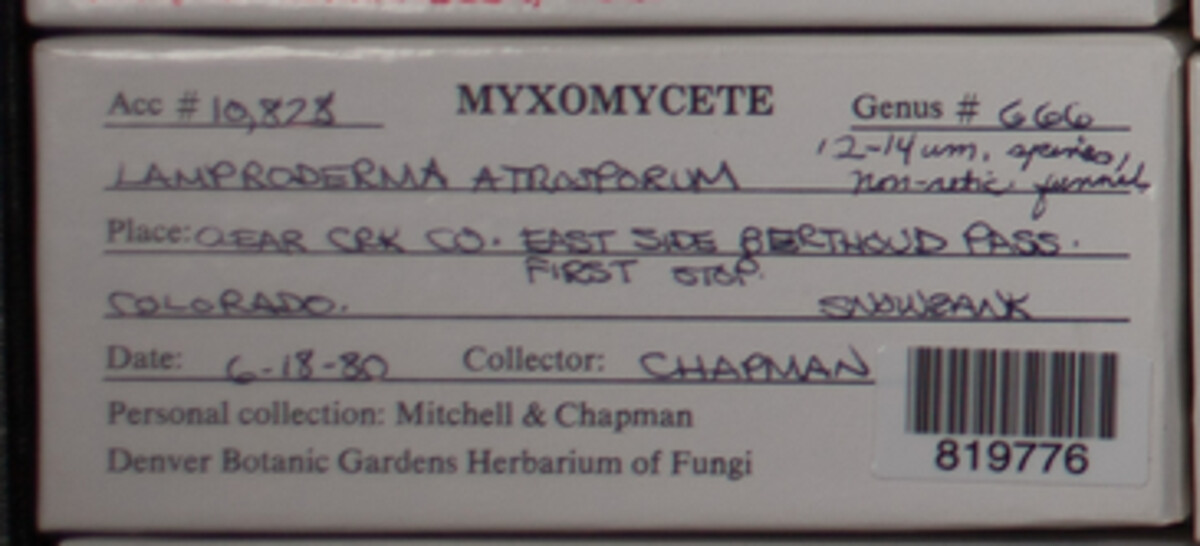 Acc # 10,828 MYXOMYCETE Genus # 666
12-14 um, spines,
LAMPRODERMA ATROSPORUM non-retic. funnels
Place: CLEAR CRK CO. EAST SIDE BERTHOUD PASS.
FIRST STOP.
COLORADO. SNOWBANK
Date: 6-18-80 Collector: CHAPMAN
Personal collection: Mitchell & Chapman
Denver Botanic Gardens Herbarium of Fungi
819776